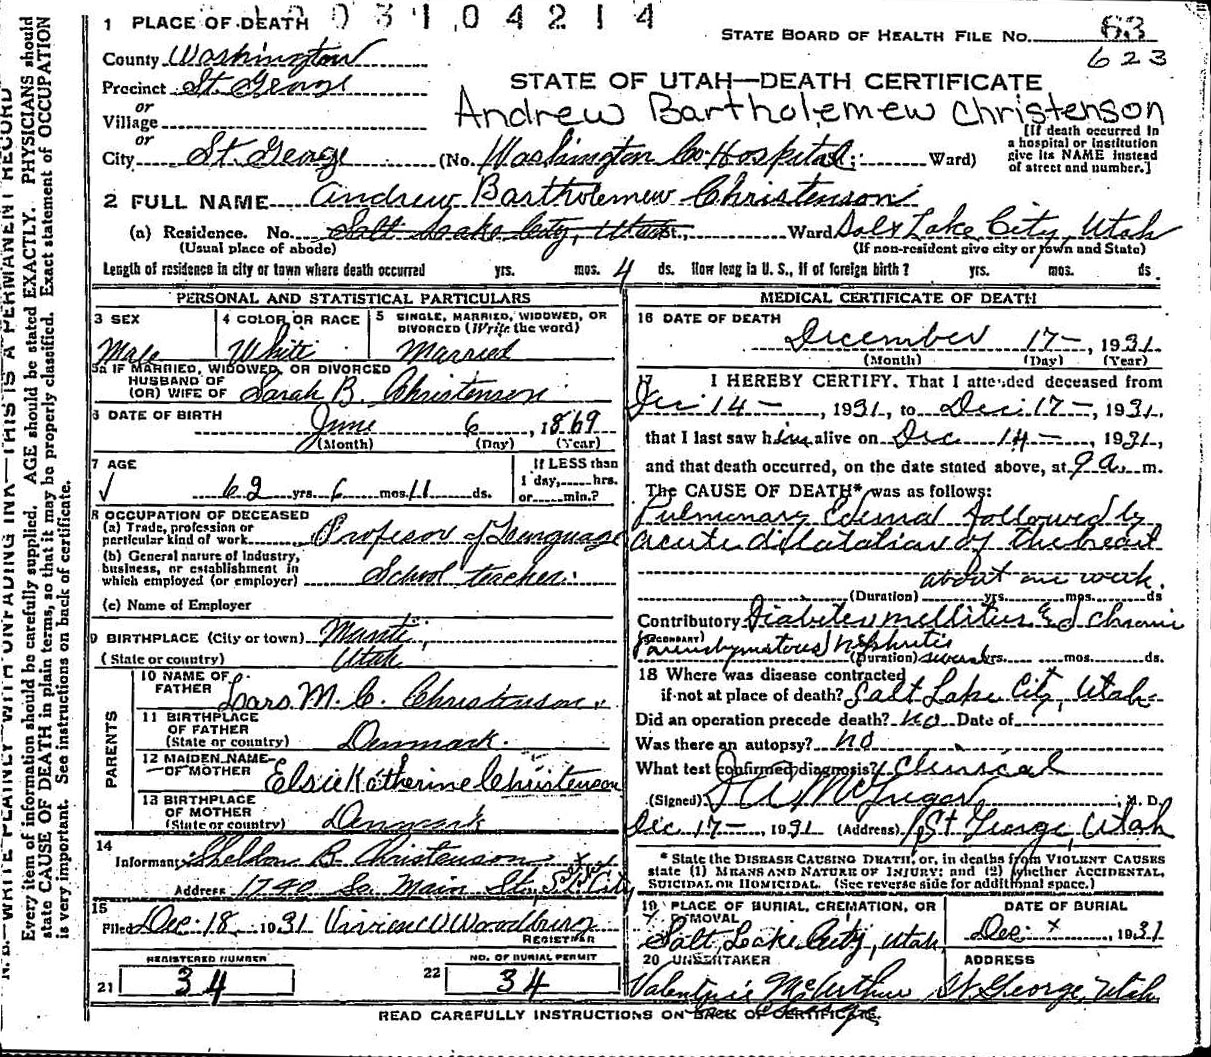 1 PLACE OF DEATH
0 3 1 0 4 2 1 4
STATE BOARD OF HEALTH FILE No. 63
623
County Washington
Precinct St. George
or
Village
or
City St. George (No. Washington Co Hospital; Ward)
STATE OF UTAH—DEATH CERTIFICATE
Andrew Bartholemew Christenson
[If death occurred in
a hospital or institution
give its NAME instead
of street and number.]
2 FULL NAME Andrew Bartholemew Christenson
(a) Residence. No. Salt Lake City, Utah St., Ward Salt Lake City, Utah
(Usual place of abode) (If non-resident give city or town and State)
Length of residence in city or town where death occurred yrs. mos. 4 ds. How long in U. S., if of foreign birth? yrs. mos. ds.
PERSONAL AND STATISTICAL PARTICULARS
3 SEX
Male
4 COLOR OR RACE
White
5 SINGLE, MARRIED, WIDOWED, OR
DIVORCED (Write the word)
Married
5a IF MARRIED, WIDOWED, OR DIVORCED
HUSBAND OF
(OR) WIFE OF Sarah B. Christenson
6 DATE OF BIRTH
June 6, 1869
(Month) (Day) (Year)
7 AGE
62 yrs. 6 mos. 11 ds.
If LESS than
1 day, hrs.
or min.?
8 OCCUPATION OF DECEASED
(a) Trade, profession or
particular kind of work Profesor of Language
(b) General nature of Industry,
business, or establishment in
which employed (or employer) School teacher.
(c) Name of Employer
9 BIRTHPLACE (City or town) Manti,
(State or country) Utah
PARENTS
10 NAME OF
FATHER Lars M. C. Christenson
11 BIRTHPLACE
OF FATHER
(State or country) Denmark.
12 MAIDEN NAME
OF MOTHER Elsie Katherine Christenson
13 BIRTHPLACE
OF MOTHER
(State or country) Denmark
14
Informant Sheldon B. Christenson
Address 1740 So. Main St., S. L. City
15
Filed Dec. 18, 1931 Vivian W Woodbury
REGISTRAR
REGISTERED NUMBER
21 34
NO. OF BURIAL PERMIT
22 34
MEDICAL CERTIFICATE OF DEATH
16 DATE OF DEATH
December 17—, 1931
(Month) (Day) (Year)
17 I HEREBY CERTIFY, That I attended deceased from
Dec 14—, 1931, to Dec. 17—, 1931.
that I last saw him alive on Dec 14—, 1931,
and that death occurred, on the date stated above, at 9 a. m.
The CAUSE OF DEATH* was as follows:
Pulmonary Edema followed by
acute dilatation of the heart
about one week.
(Duration) yrs. mos. ds
Contributory Diabetes mellitus & chronic
(SECONDARY) Parenchymatous nephritis
(Duration) several yrs. mos. ds.
18 Where was disease contracted
if not at place of death? Salt Lake City, Utah
Did an operation precede death? no Date of
Was there an autopsy? no
What test confirmed diagnosis? Clinical
(Signed) D A McGregor, M. D.
Dec 17—, 1931 (Address) St George, Utah
* State the DISEASE CAUSING DEATH, or, in deaths from VIOLENT CAUSES
state (1) MEANS AND NATURE OF INJURY; and (2) whether ACCIDENTAL,
SUICIDAL OR HOMICIDAL. (See reverse side for additional space.)
19 PLACE OF BURIAL, CREMATION, OR
REMOVAL
Salt Lake City, Utah
DATE OF BURIAL
Dec. x, 1931
20 UNDERTAKER
McArthur
ADDRESS
St. George, Utah
READ CAREFULLY INSTRUCTIONS ON BACK OF CERTIFICATE.
N. B.—WRITE PLAINLY WITH UNFADING INK—THIS IS A PERMANENT RECORD
Every item of information should be carefully supplied. AGE should be stated EXACTLY. PHYSICIANS should
state CAUSE OF DEATH in plain terms, so that it may be properly classified. Exact statement of OCCUPATION
is very important. See instructions on back of certificate.